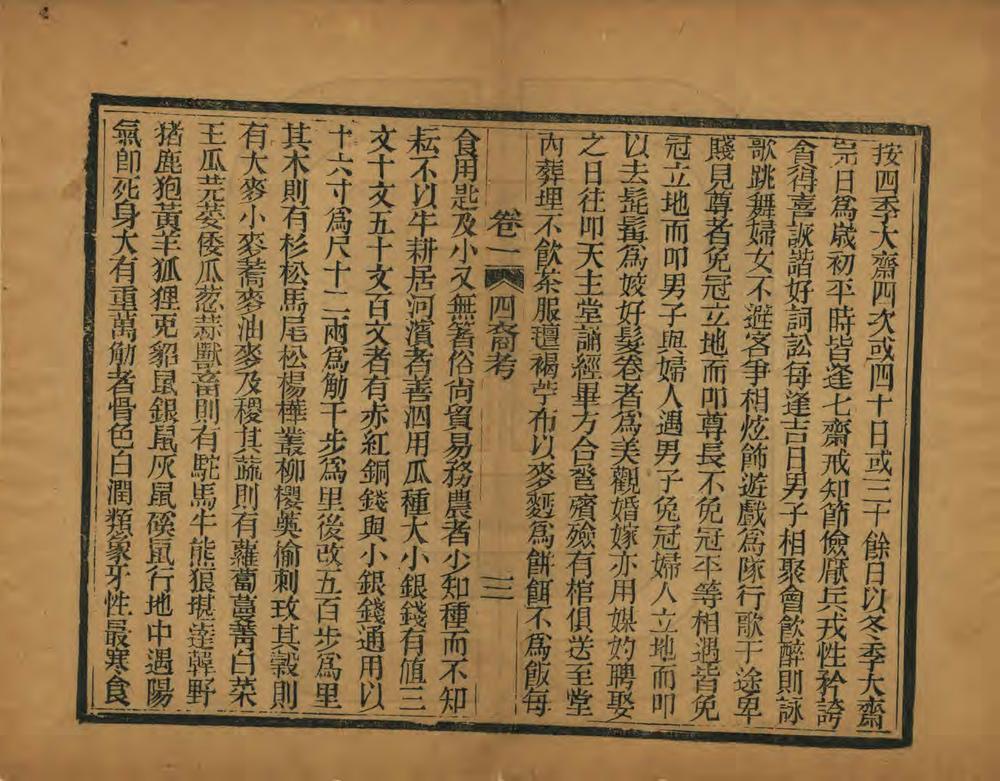 按四季大齋四次或四十日或三十餘日以冬季大齋
完日爲歲初平時皆逢七齋戒知節儉厭兵戎性矜誇
貪得喜詼諧好詞訟每逢吉日男子相聚會飲醉則詠
歌跳舞婦女不避客爭相炫飾遊戲爲隊行歌于途卑
賤見尊者免冠立地而叩尊長不免冠平等相遇皆免
冠立地而叩男子與婦人遇男子免冠婦人立地而叩
以去髭髯爲姣好髮卷者爲美觀婚嫁亦用媒妁聘娶
之日往叩天主堂誦經畢方合卺殯殮有棺俱送至堂
內葬埋不飲茶服氊褐苧布以麥麫爲餅餌不爲飯每
卷二 四裔考 三
食用匙及小叉無箸俗尚貿易務農者少知種而不知
耘不以牛耕居河濱者善泅用瓜種大小銀錢有值三
文十文五十文百文者有赤紅銅錢與小銀錢通用以
十六寸爲尺十二兩爲觔千步爲里後改五百步爲里
其木則有杉松馬尾松楊樺叢柳櫻薁偷刺玫其穀則
有大麥小麥蕎麥油麥及稷其蔬則有蘿蔔蔓菁白菜
王瓜芫荽倭瓜葱蒜獸畜則有駝馬牛熊狼堪達韓野
猪鹿狍黃羊狐狸兎貂鼠銀鼠灰鼠磎鼠行地中遇陽
氣卽死身大有重萬觔者骨色白潤類象牙性最寒食